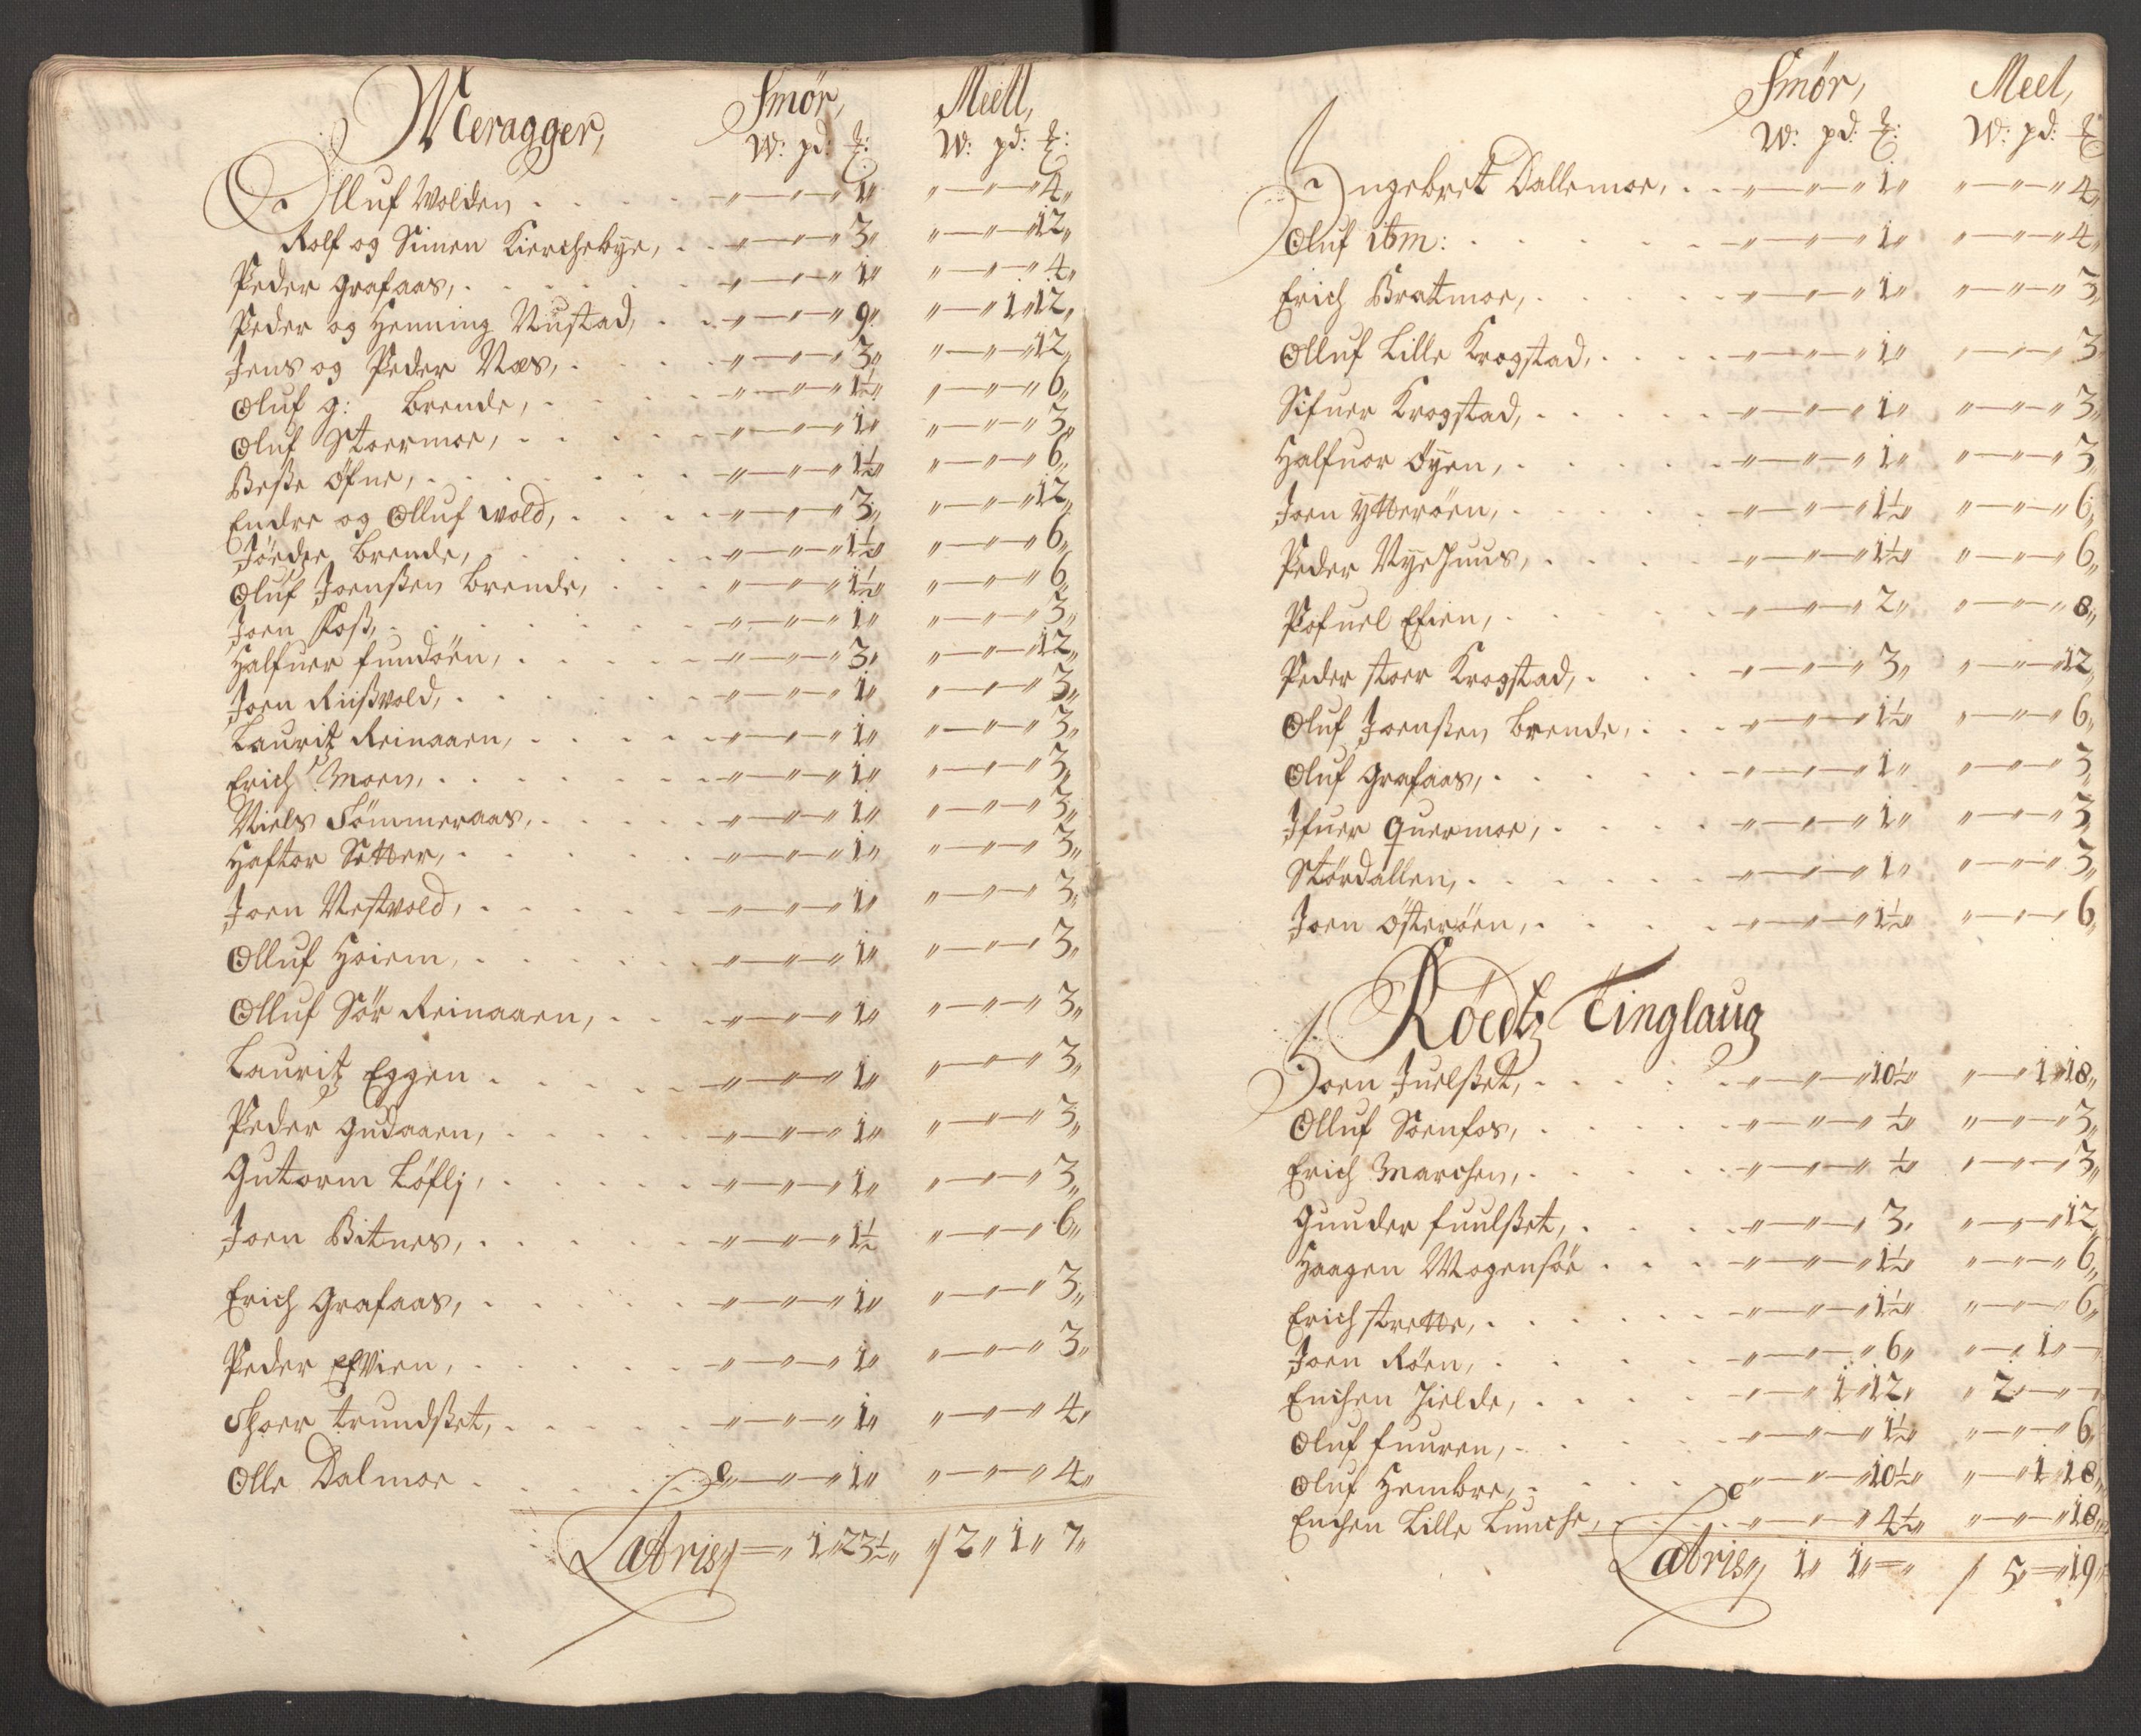 Meragger, Smör, Meell,
W: pd: ℔: W: pd: ℔:
Olluf Wolden . . . . „—„—„ 1„ „—„—„ 4„
Rolf og Simen Kierchebye, . . „—„—„ 3„ „—„—„ 12„
Peder Grafaas, . . . . „—„—„ 1„ „—„—„ 4„
Peder og Henning Nustad, . . „—„—„ 9„ „—„ 1„ 12„
Jens og Peder Næs, . . . „—„—„ 3„ „—„—„ 12„
Oluf g: Brende, . . . . „—„—„ 1½„ „—„—„ 6„
Oluf Stoermoe, . . . . „—„—„ 1„ „—„—„ 3„
Beße Öfne, . . . . . „—„—„ 1½„ „—„—„ 6„
Endre og Olluf Wold, . . . „—„—„ 3„ „—„—„ 12„
Förder Brende, . . . . „—„—„ 1½„ „—„—„ 6„
Oluf Joenßen Brende, . . . „—„—„ 1½„ „—„—„ 6„
Joen Foß, . . . . . „—„—„ 1„ „—„—„ 3„
Halfuer Fundöen, . . . . „—„—„ 3„ „—„—„ 12„
Joen Riißvold, . . . . „—„—„ 1„ „—„—„ 3„
Lauritz Reinaaen, . . . . „—„—„ 1„ „—„—„ 3„
Erich Moen, . . . . . „—„—„ 1„ „—„—„ 3„
Niels Sömmeraas, . . . . „—„—„ 1„ „—„—„ 3„
Haftor Setter, . . . . „—„—„ 1„ „—„—„ 3„
Joen Nestvold, . . . . „—„—„ 1„ „—„—„ 3„
Olluf Hoiem, . . . . „—„—„ 1„ „—„—„ 3„
Olluf Sör Reinaaen, . . . „—„—„ 1„ „—„—„ 3„
Lauritz Eggen . . . . „—„—„ 1„ „—„—„ 3„
Peder Gudaaen, . . . . „—„—„ 1„ „—„—„ 3„
Gutorm Löflj, . . . . „—„—„ 1„ „—„—„ 3„
Joen Bitnes, . . . . „—„—„ 1½ „—„—„ 6„
Erich Grafaas, . . . . „—„—„ 1„ „—„—„ 3„
Peder Efvien, . . . . „—„—„ 1„ „—„—„ 3„
Sjoer Trundßet, . . . . „—„—„ 1„ „—„—„ 4„
Olle Dalmoe . . . . „—„—„ 1„ „—„—„ 4„
Latris „=„ 1„ 23½„ / 2„ 1„ 7„
Smör, Meel,
W: pd: ℔: W: pd: ℔
Ingebret Dallemoe, . . „—„—„ 1„ „—„—„ 4„
Oluf ibm: . . . . „—„—„ 1„ „—„—„ 4„
Erich Bratmoe, . . . . „—„—„ 1„ „—„—„ 3„
Olluf Lille Krogstad, . . . „—„—„ 1„ „—„—„ 3„
Sifuer Krogstad, . . . . „—„—„ 1„ „—„—„ 3„
Halfuor Öyen, . . . . „—„—„ 1„ „—„—„ 3„
Joen Ytteröen, . . . . „—„—„ 1½„ „—„—„ 6„
Peder Nyehuus, . . . . „—„—„ 1½„ „—„—„ 6„
Pofuel Efien, . . . . „—„—„ 2„ „—„—„ 8„
Peder Stoer Krogstad, . . . „—„—„ 3„ „—„—„ 12„
Oluf Joenßen Brende, . . . „—„—„ 1½„ „—„—„ 6„
Oluf Grafaas, . . . . „—„—„ 1„ „—„—„ 3„
Ifuer Quermoe, . . . . „—„—„ 1„ „—„—„ 3„
Stördallen, . . . . „—„—„ 1„ „—„—„ 3„
Joen Österöen, . . . . „—„—„ 1½„ „—„—„ 6„
Röedtz Tinglaug
Joen Juelßet, . . . . „—„—„ 10½„ „—„ 1„ 18„
Olluf Soenfos, . . . . „—„—„ ½„ „—„—„ 3„
Erich Marchen, . . . . „—„—„ ½„ „—„—„ 3„
Gunder Fuulßet, . . . . „—„—„ 3„ „—„—„ 12„
Haagen Mogensöe . . . „—„—„ 1½„ „—„—„ 6„
Erich Strette, . . . . „—„—„ 1½„ „—„—„ 6„
Joen Röen, . . . . „—„—„ 6„ „—„ 1„ —
Enchen Hielde, . . . . „—„ 1„ 12„ „ 2„—„—
Oluf Fuuren, . . . . „—„—„ 1½„ „—„—„ 6„
Oluf Hembre, . . . . „—„—„ 10½„ „—„ 1„ 18„
Enchen Lille Lunche, . . . „—„—„ 4½„ „—„—„ 18„
Latris„ 1„ 1„=„ / 5„=„ 19„